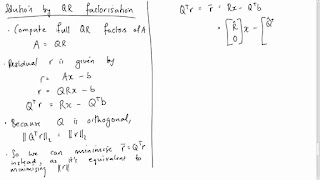 Solution by QR factorisation
• Compute full QR factors of A
A = QR
• Residual r is given by
r = Ax - b
r = QRx - b
Qᵀr = Rx - Qᵀb
• Because Q is orthogonal,
||Qᵀr||₂ = ||r||₂
• So we can minimise r̄ = Qᵀr
instead, as it's equivalent to
minimising ||r||
Qᵀr = r̄ = Rx - Qᵀb
= [R̂ 0] x - [Q̂